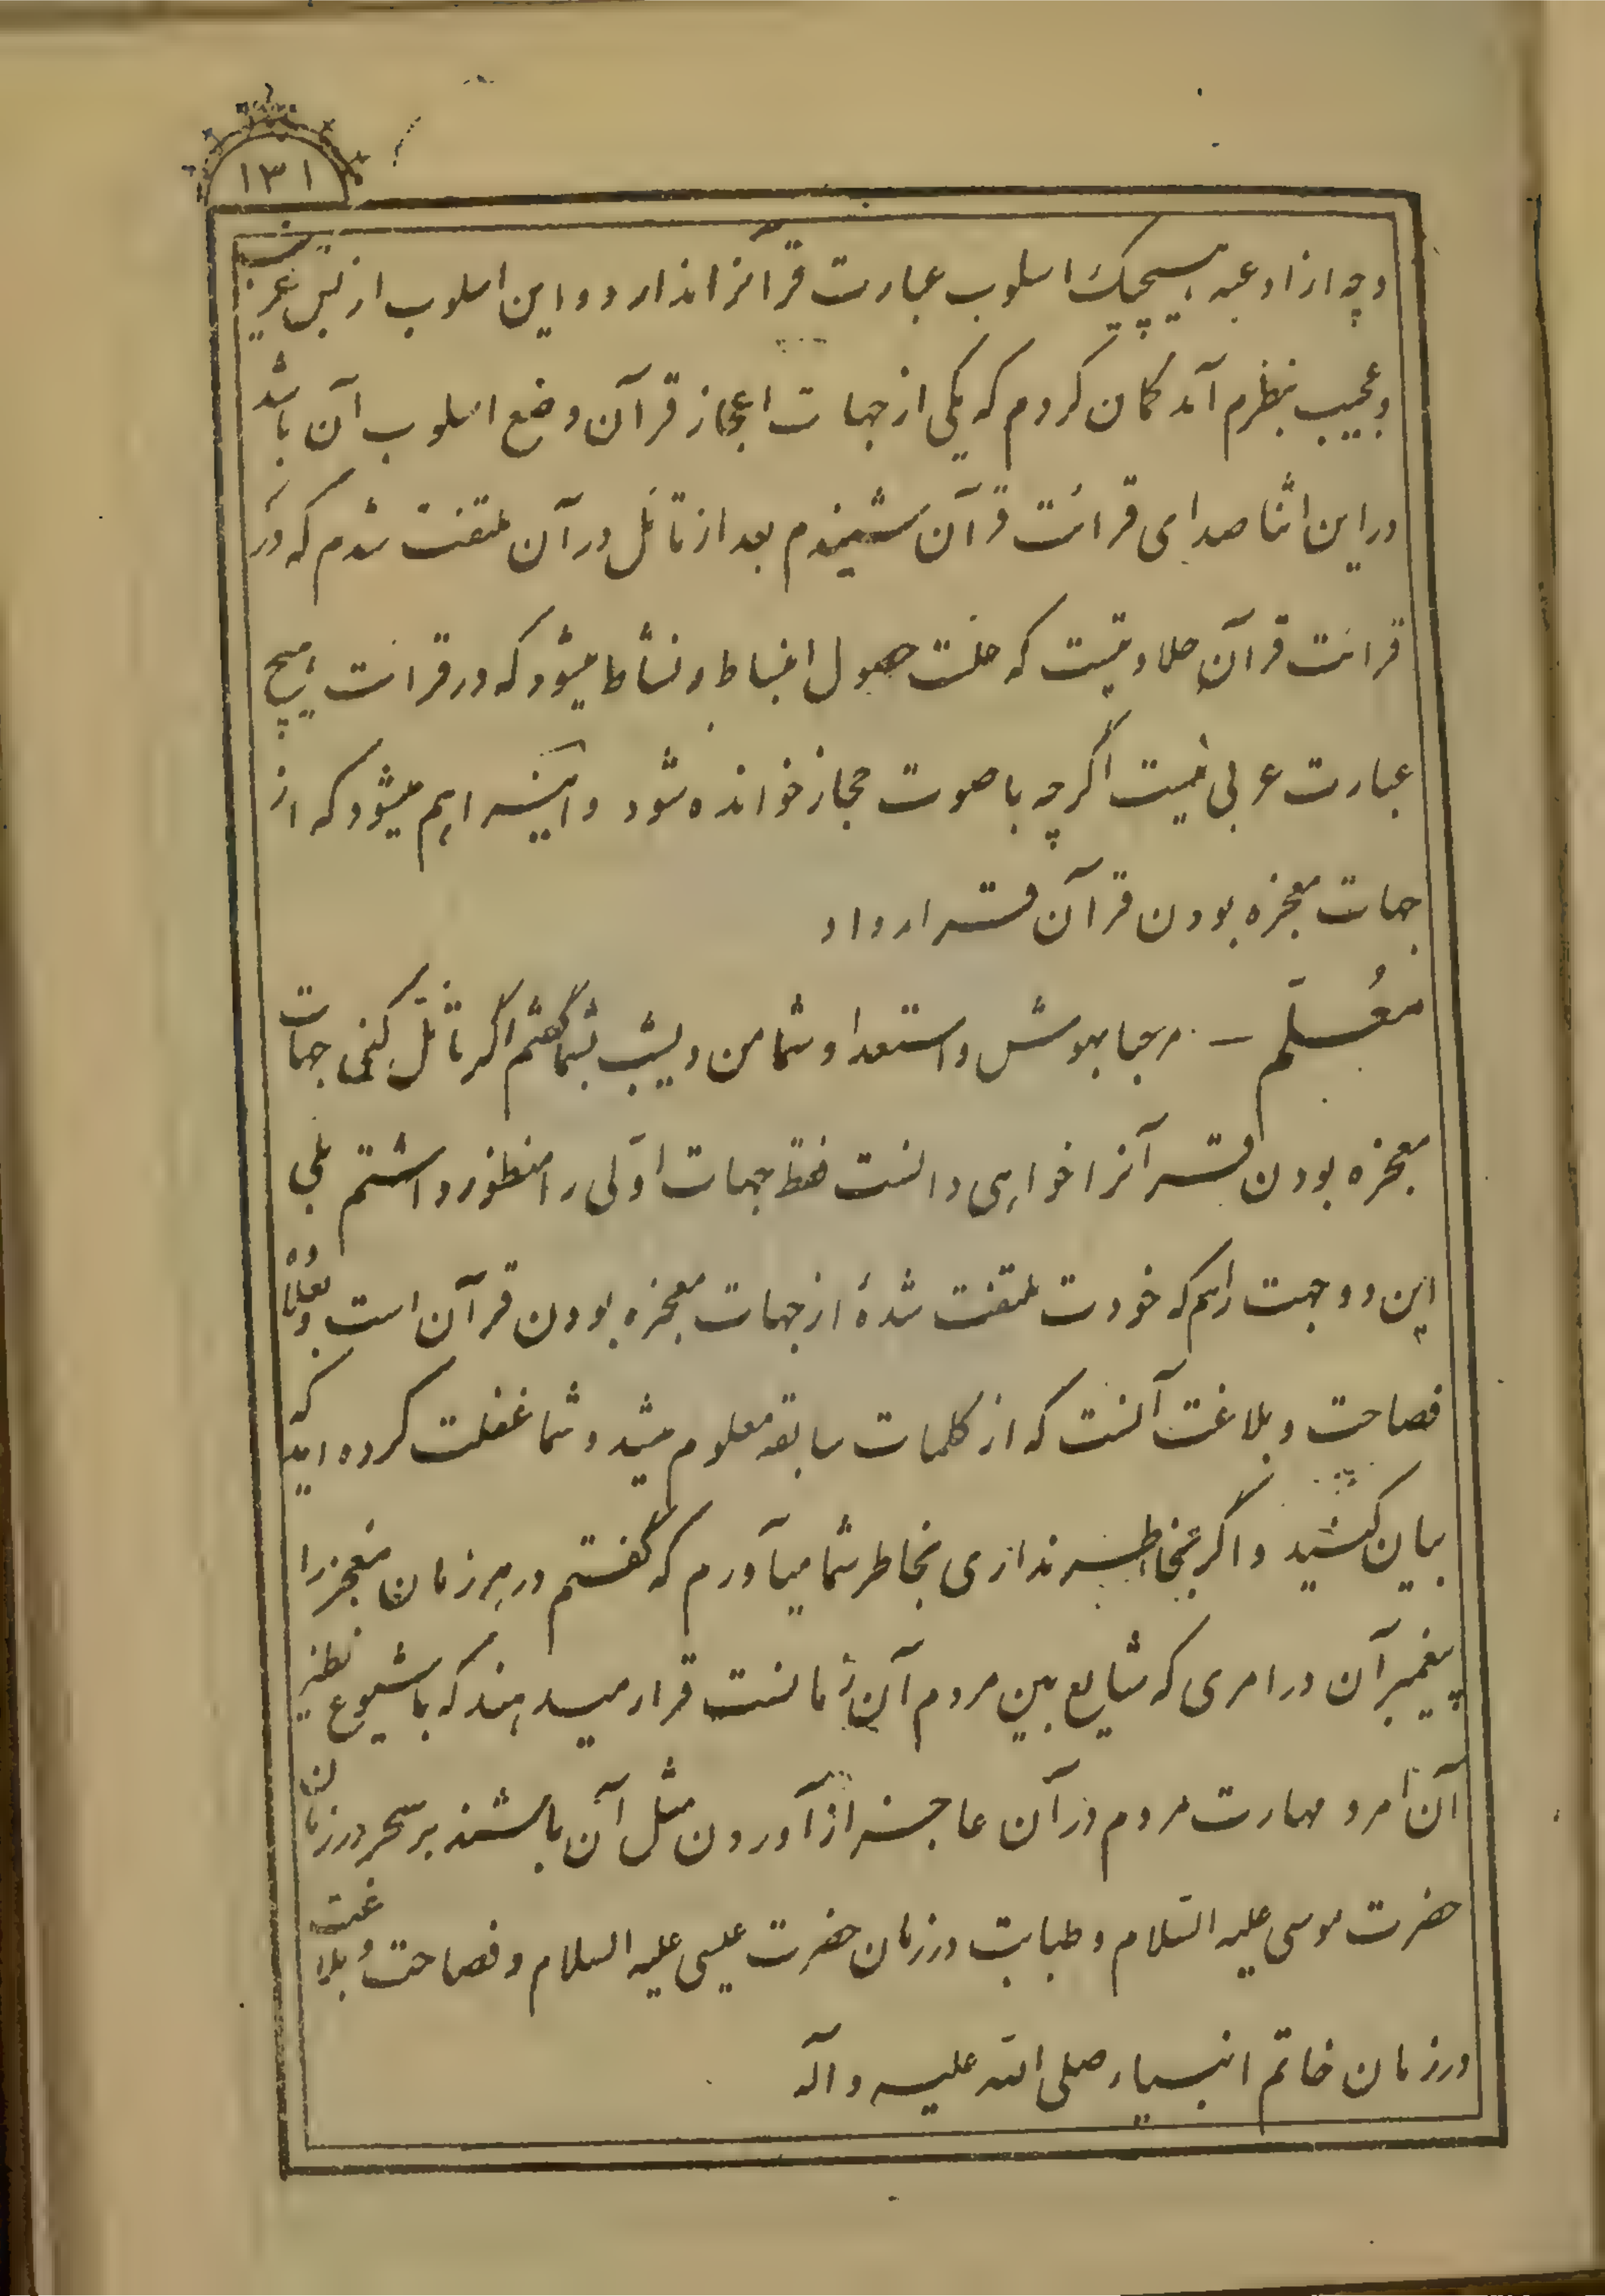 ۱۳۱
وچه از ادعیه هیچیک اسلوب عبارت قرآنرا ندارد و این اسلوب از بس غریب
و عجیب بنظرم آمد کمان کردم که یکی از جهات اعجاز قرآن وضع اسلوب آن باشد
در این اثنا صدای قرائت قرآن شنیدم بعد از تأمل در آن ملتفت شدم که در
قرائت قرآن حلاوتیست که علت حصول انبساط و نشاط میشود که در قرائت هیچ
عبارت عربی نیست اگرچه با صوت حجاز خوانده شود و اینرا هم میشود که از
جهات معجزه بودن قرآن قرار داد
معلّم – مرحبا بهوش و استعداد شما من دیشب بشما گفتم اگر تأمّل کنی جهات
معجزه بودن قرآنرا خواهی دانست فقط جهات اوّلی را منظور داشتم بلی
این دو جهت را هم که خودت ملتفت شدهٔ از جهات معجزه بودن قرآن است و علاوه
فصاحت و بلاغت آنست که از کلمات سابقه معلوم میشد و شما غفلت کرده‌اید که
بیان کنید و اگر بخاطر نداری بخاطر شما میآورم که گفتم در هر زمان معجز را
پیغمبر آن در امری که شایع بین مردم آن زمانست قرار میدهند که با شیوع نظیر
آن امر و مهارت مردم در آن عاجز از آوردن مثل آن باشند بر سحر در زمان
حضرت موسی علیه السّلام و طبابت در زمان حضرت عیسی علیه السلام و فصاحت و بلاغت
در زمان خاتم انبیاء صلی الله علیه و آله